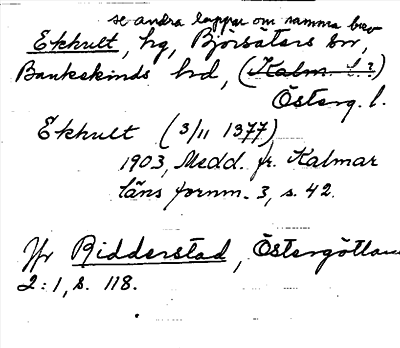 se andra lappar om samma brev
Ekhult, hg, Björsäters sn,
Bankekinds hd, (Kalm. l.?)
Österg. l.
Ekhult (3/11 1377)
1903, Medd. fr. Kalmar
läns fornm. 3, s. 42.
Jfr Ridderstad, Östergötland
2:1, s. 118.